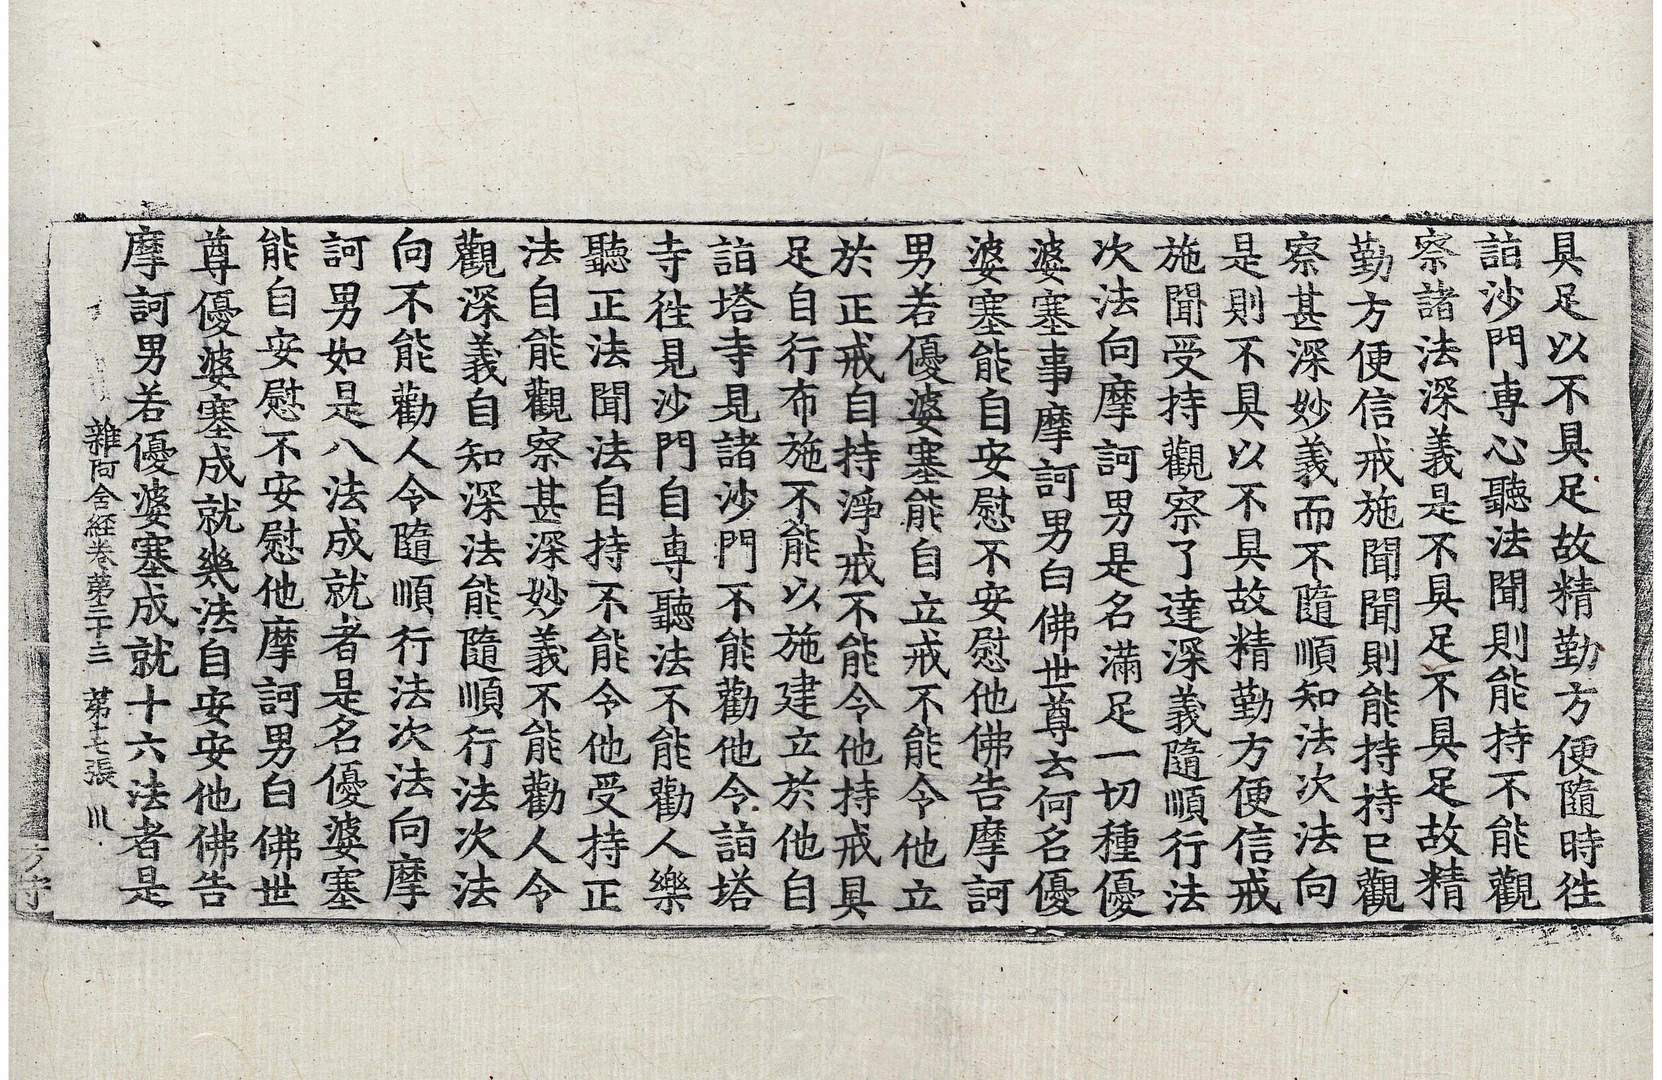 具足以不具足故精勤方便隨時徃
詣沙門専心聽法聞則能持不能觀
察諸法深義是不具足不具足故精
勤方便信戒施聞聞則能持持已觀
察甚深妙義而不隨順知法次法向
是則不具以不具故精勤方便信戒
施聞受持觀察了達深義隨順行法
次法向摩訶男是名滿足一切種優
婆塞事摩訶男白佛世尊云何名優
婆塞能自安慰不安慰他佛告摩訶
男若優婆塞能自立戒不能令他立
於正戒自持淨戒不能令他持戒具
足自行布施不能以施建立於他自
詣塔寺見諸沙門不能勸他令詣塔
寺徃見沙門自専聽法不能勸人樂
聽正法聞法自持不能令他受持正
法自能觀察甚深妙義不能勸人令
觀深義自知深法能隨順行法次法
向不能勸人令隨順行法次法向摩
訶男如是八法成就者是名優婆塞
能自安慰不安慰他摩訶男白佛世
尊優婆塞成就幾法自安安他佛告
摩訶男若優婆塞成就十六法者是
雜阿含経卷第三十三 第十七張 川